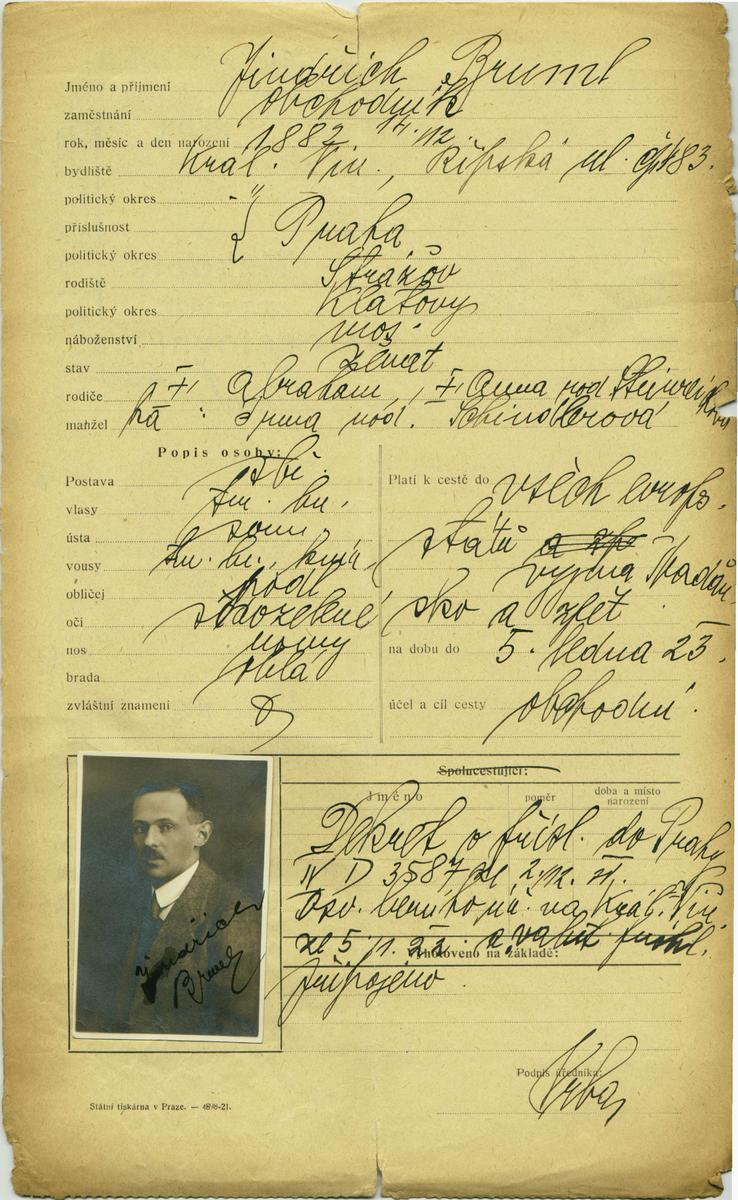 Jméno a příjmení Jindřich Bruml
zaměstnání obchodník
rok, měsíc a den narození 1882 14.12.
bydliště Král. Vin., Řipská ul. čp. 483.
politický okres "
příslušnost } Praha
politický okres
rodiště Strážov
politický okres Klatovy
náboženství mos.
stav ženat
rodiče Abraham, Anna rod.
manžel ka: Irma rod. Schindlerová
Popis osoby:
Postava
vlasy tm. bn.
ústa soum.
vousy tm. bn., knír
obličej podl.
oči šedozelené
nos rovný
brada oblá
zvláštní znamení
Platí k cestě do všech evrops.
států a zp
vyjma Maďar
sko a zpět
na dobu do 5. ledna 23.
účel a cíl cesty obchodní.
Spolucestující:
Jméno poměr doba a místo narození
Dekret o přísl. do Prahy
IV D 3587 ze 2./12. 21.
Osv. berního úř. na Král. Vin.
ze 5./1. 22.
Vyhotoveno na základě:
připojeno.
Jindřich
Bruml
Podpis úředníka:
Vrba
Státní tiskárna v Praze. —